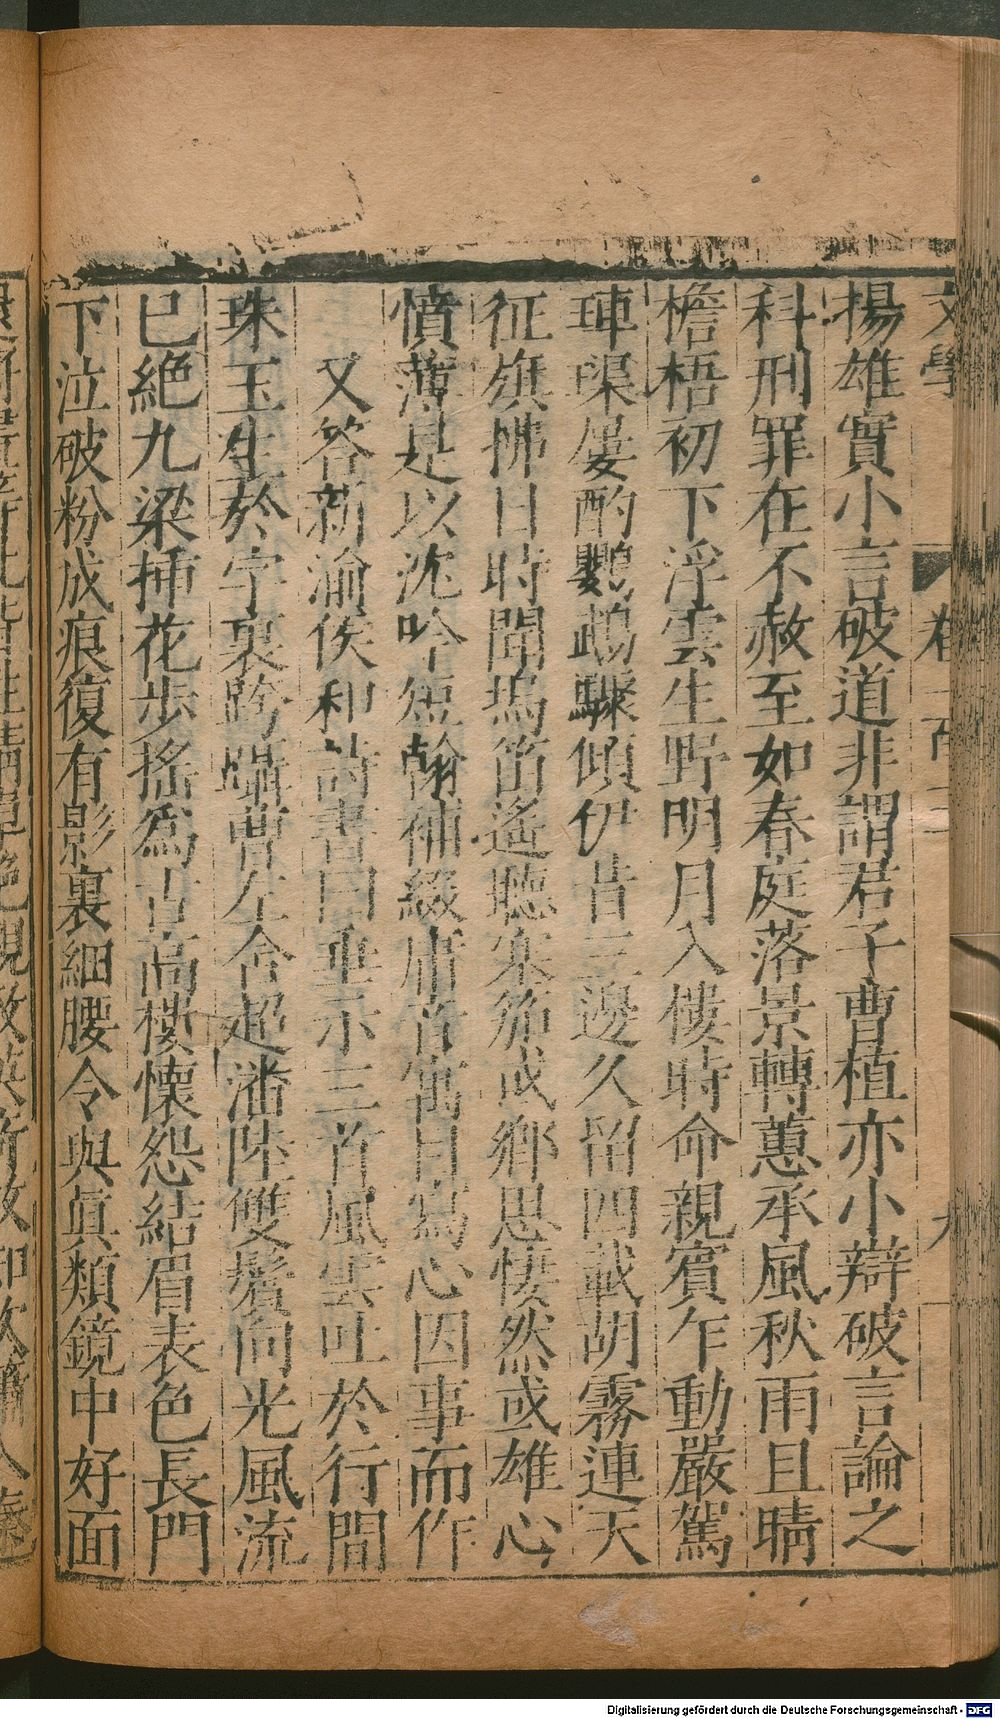 文學
卷二百三
九
揚雄實小言破道非謂君子曹植亦小辯破言論之
科刑罪在不赦至如春庭落景轉蕙承風秋雨且晴
檐梧初下浮雲生野明月入樓時命親賓乍動嚴駕
車渠屢酌鸚鵡驟傾伊昔三邊久留四載胡霧連天
征旗拂日時聞塢笛遙聽塞笳或鄉思悽然或雄心
憤薄是以沈吟短翰補綴庸音寓目寫心因事而作
又答新渝侯和詩書曰垂示三首風雲吐於行間
珠玉生於字裏跨躡曹左含超潘陸雙鬢向光風流
已絕九梁揷花步搖爲古高樓懷怨結眉表色長門
下泣破粉成痕復有影裏細腰令與眞類鏡中好面
Digitalisierung gefördert durch die Deutsche Forschungsgemeinschaft - DFG